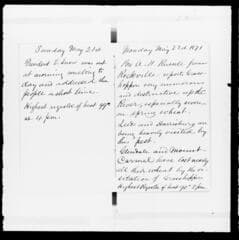 Sunday May 21st
President E Snow was out
at morning meeting to
day and addressed the
people a short time.
Highest register of heat 99°
at 4 p.m.
Monday May 22nd 1871
Bro A. M. Russell from
Rockville report Grass-
hoppers very numerous
and destructive up the
River, especially more
on spring wheat.
Leeds and Harrisburg are
being heavily visited by
this pest.
Glendale and Mount
Carmel have lost nearly
all their wheat by the
visitation of Grasshoppers
Highest Register of heat 90° 2 p.m.